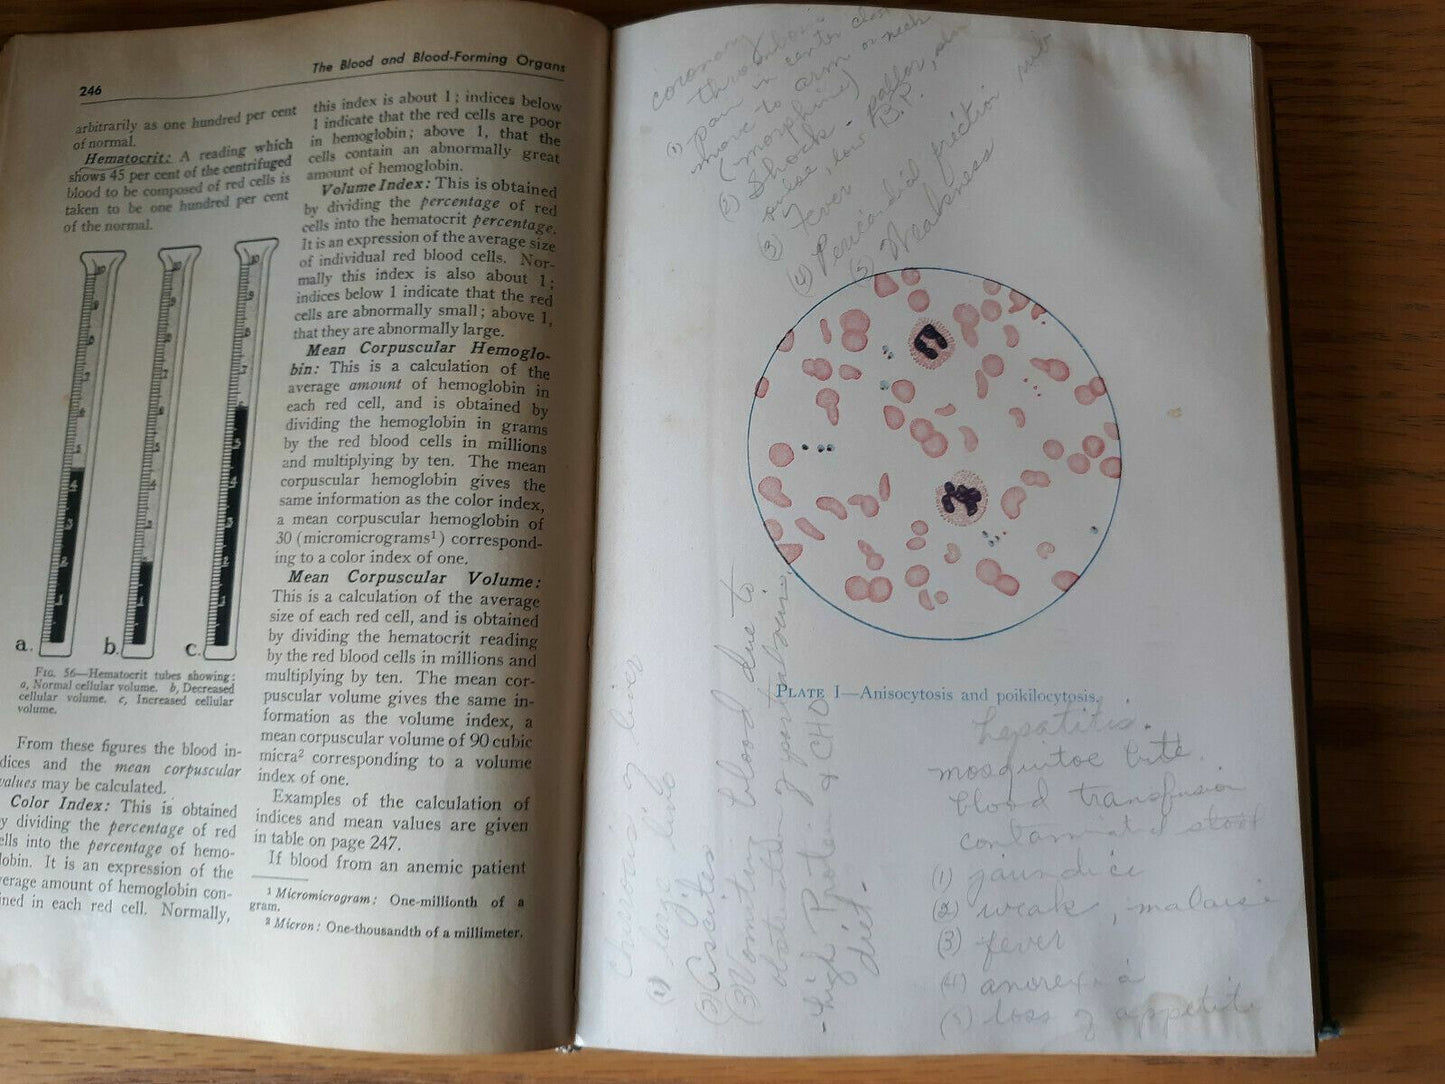 246
The Blood and Blood-Forming Organs
arbitrarily as one hundred per cent
of normal.
Hematocrit: A reading which
shows 45 per cent of the centrifuged
blood to be composed of red cells is
taken to be one hundred per cent
of the normal.
a.
b.
c.
FIG. 56—Hematocrit tubes showing:
a, Normal cellular volume. b, Decreased
cellular volume. c, Increased cellular
volume.
From these figures the blood in-
dices and the mean corpuscular
values may be calculated.
Color Index: This is obtained
by dividing the percentage of red
cells into the percentage of hemo-
lobin. It is an expression of the
verage amount of hemoglobin con-
ined in each red cell. Normally,
this index is about 1; indices below
1 indicate that the red cells are poor
in hemoglobin; above 1, that the
cells contain an abnormally great
amount of hemoglobin.
Volume Index: This is obtained
by dividing the percentage of red
cells into the hematocrit percentage.
It is an expression of the average size
of individual red blood cells. Nor-
mally this index is also about 1;
indices below 1 indicate that the red
cells are abnormally small; above 1,
that they are abnormally large.
Mean Corpuscular Hemoglo-
bin: This is a calculation of the
average amount of hemoglobin in
each red cell, and is obtained by
dividing the hemoglobin in grams
by the red blood cells in millions
and multiplying by ten. The mean
corpuscular hemoglobin gives the
same information as the color index,
a mean corpuscular hemoglobin of
30 (micromicrograms¹) correspond-
ing to a color index of one.
Mean Corpuscular Volume:
This is a calculation of the average
size of each red cell, and is obtained
by dividing the hematocrit reading
by the red blood cells in millions and
multiplying by ten. The mean cor-
puscular volume gives the same in-
formation as the volume index, a
mean corpuscular volume of 90 cubic
micra² corresponding to a volume
index of one.
Examples of the calculation of
indices and mean values are given
in table on page 247.
If blood from an anemic patient
¹ Micromicrogram: One-millionth of a
gram.
² Micron: One-thousandth of a millimeter.
coronary
thrombosis
(1) pain in center chest
more to arm or neck
(morphine)
(2) Shock - pallor,
pulse, low B.P.
(3) fever
(4) Pericardial friction rub
(5) Weakness
PLATE I—Anisocytosis and poikilocytosis.
chirrosis of liver
(1) large live
(2) Ascites
(3) Vomiting blood due to
obstruction of portal vein
- High Protein & CHO
diet -
hepatitis.
mosquitoe bite.
blood transfusion
contaminated stool
(1) jaundice
(2) weak, malaise
(3) fever
(4) anorexia
(5) loss of appetite